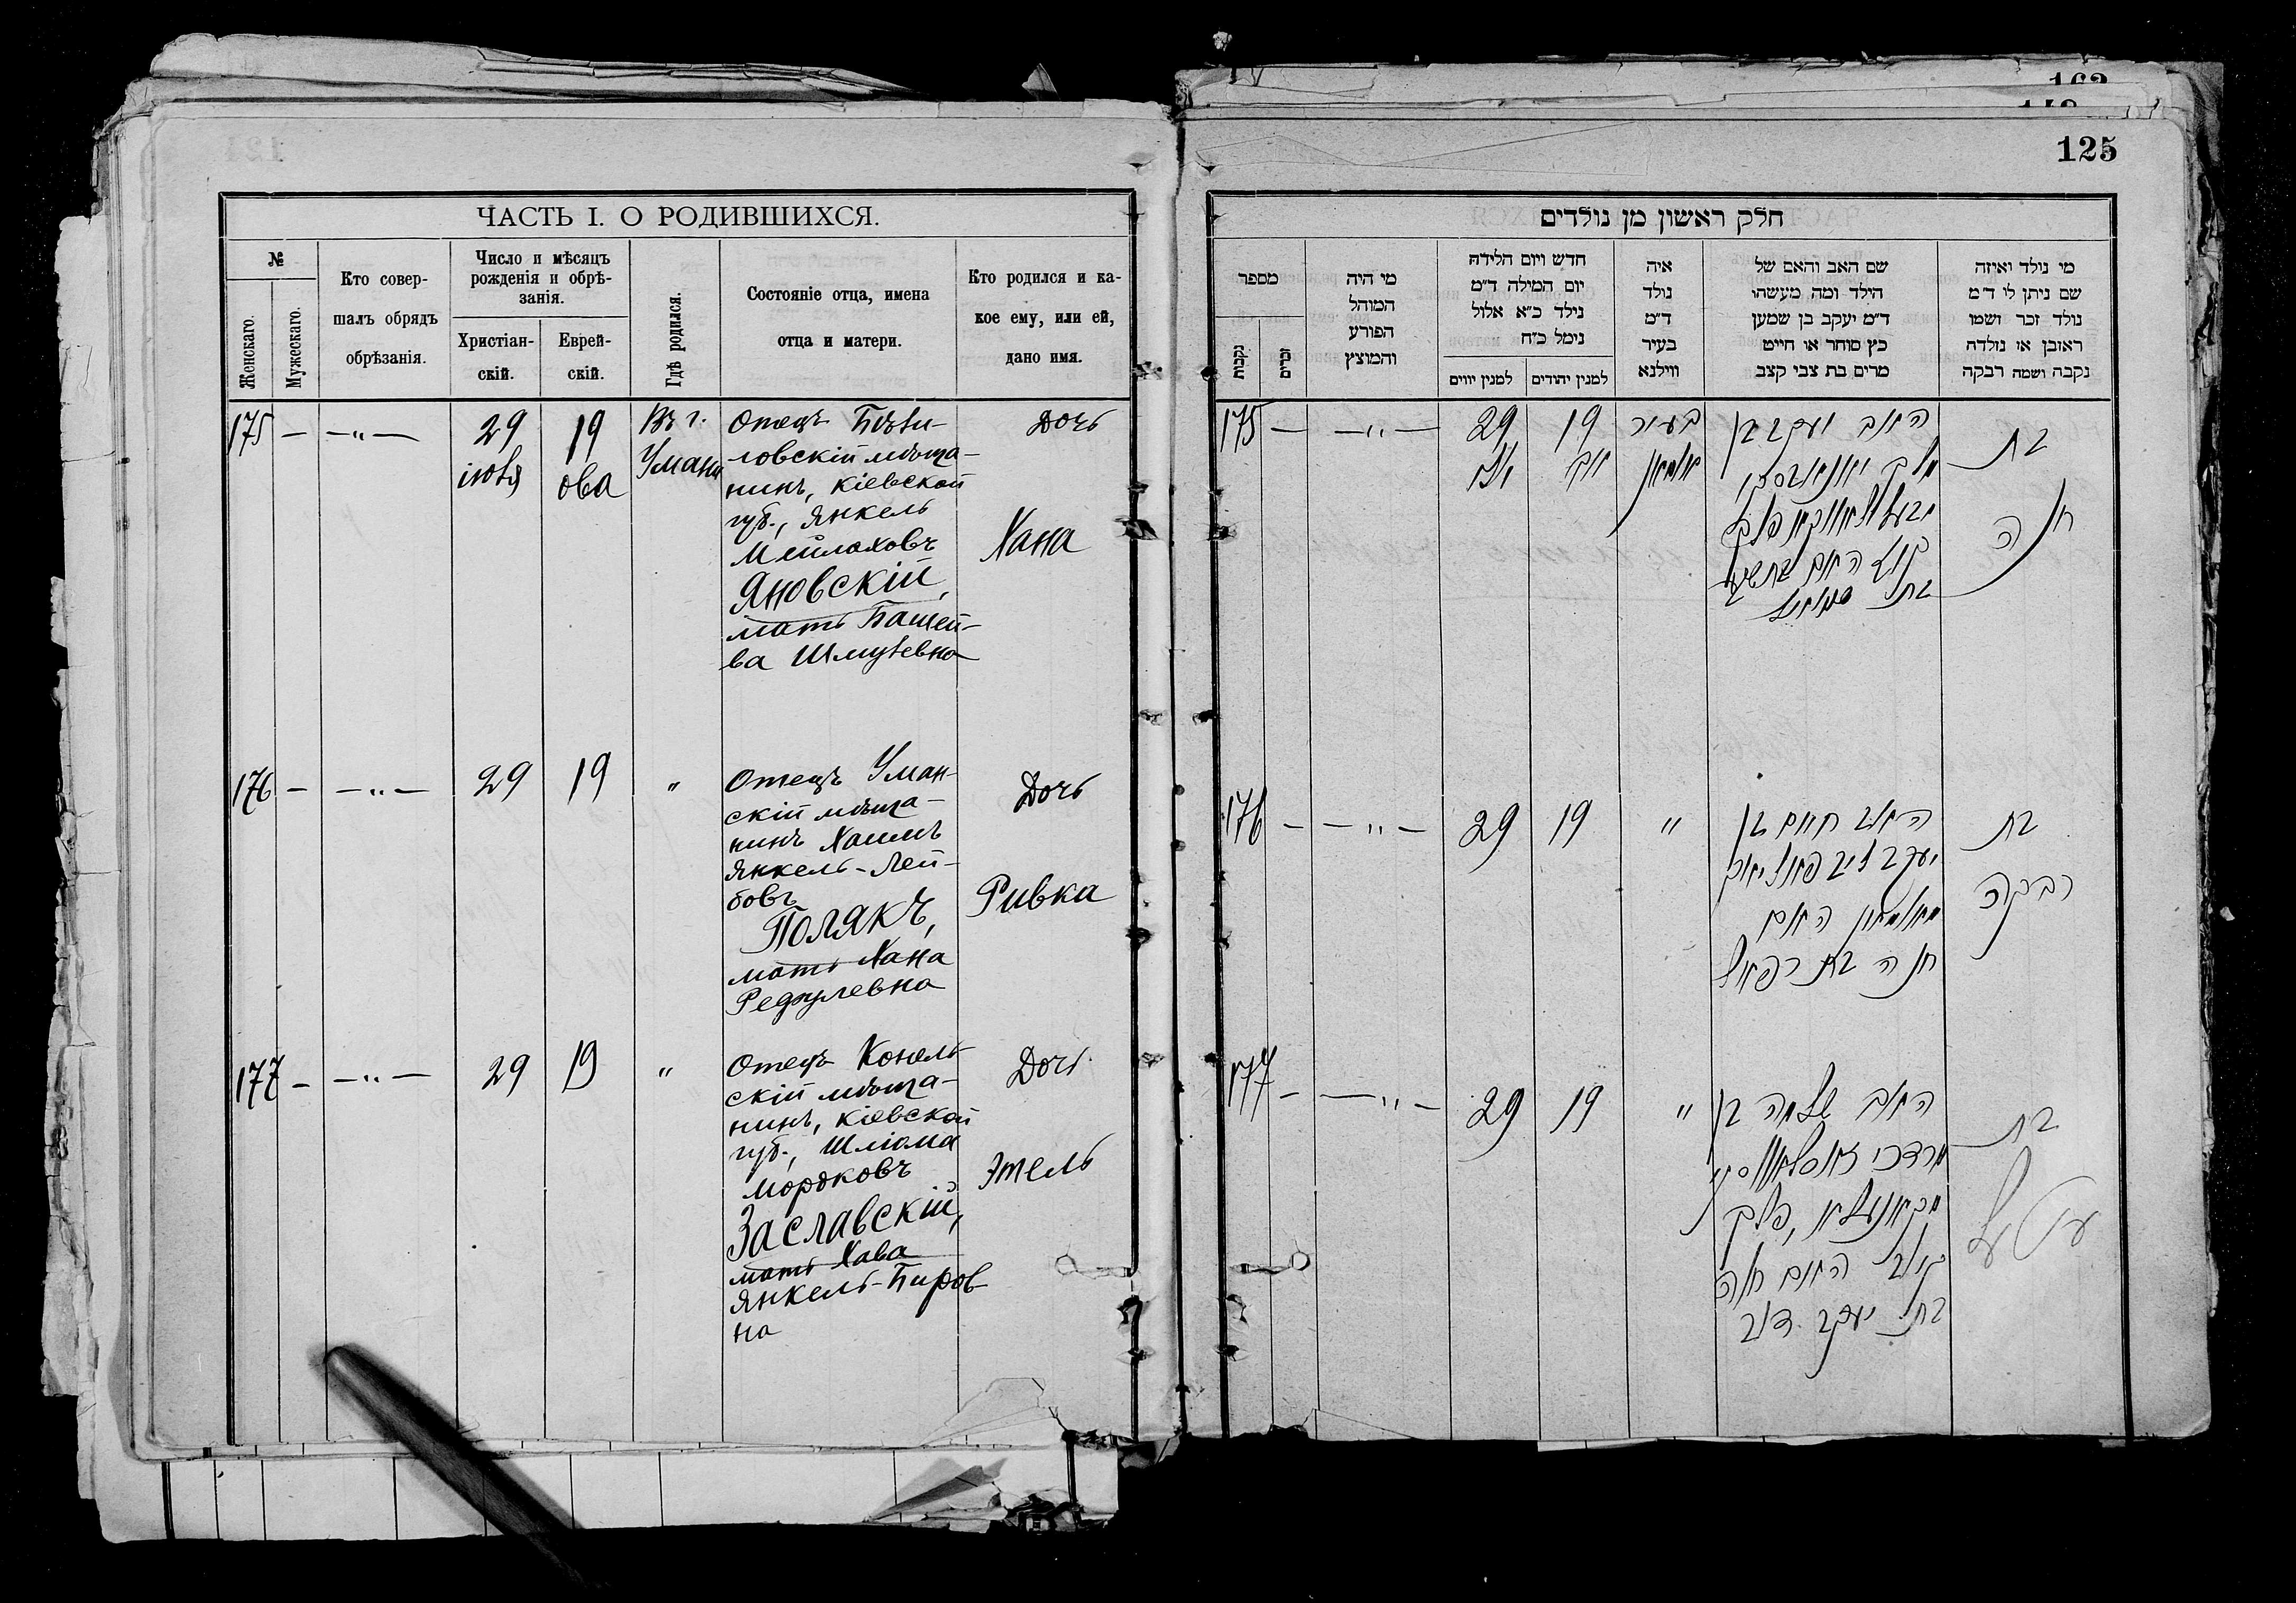 163
125
ЧАСТЬ I. О РОДИВШИХСЯ.
№
Женскаго.
Мужескаго.
Кто совер-
шалъ обрядъ
обрѣзанія.
Число и мѣсяцъ
рожденія и обрѣ-
занія.
Христіан-
скій.
Еврей-
скій.
Гдѣ родился.
Состояніе отца, имена
отца и матери.
Кто родился и ка-
кое ему, или ей,
дано имя.
175 — —„— 29 19 Въ г.
іюля ова Умани
Отецъ
ловскій мѣща-
нинъ, Кіевской
губ., Янкель
Мейлаховъ
Яновскій,
мать Башей-
ва Шмулевна
Дочь
Хана
176 — —„— 29 19 „
Отецъ Уман-
скій мѣща-
нинъ Хаимъ
Янкель-Лей-
бовъ
Полякъ,
мать Хана
Дочь
Ривка
177 — —„— 29 19 „
Отецъ Конель-
скій мѣща-
нинъ, Кіевской
губ., Шліома
Мордковъ
Заславскій,
мать Хава
Янкель-Биров-
на
Дочь
Этель
חלק ראשון מן נולדים
מספר
נקבות
זכרים
מי היה
המוהל
הפורע
והמוצץ
חדש ויום הלידה
יום המילה ד״מ
נילד כ״א אלול
נימל כ״ח
למנין יווים
למנין יהודים
איה
נולד
ד״מ
בעיר
ווילנא
שם האב והאם של
הילד ומה מעשהו
ד״מ יעקב בן שמען
כץ סוחר או חייט
מרים בת צבי קצב
מי נולד ואיזה
שם ניתן לו ד״מ
נולד זכר ושמו
ראובן או נולדה
נקבה ושמה רבקה
175 — —„— 29 19 בעיר
האב יעקב בן
בת
חנה
176 — —„— 29 19 „
האב חיים בן
יעקב ליב
האם
חנה בת רפאל
בת
רבקה
177 — —„— 29 19 „
האב שלמה בן
מרדכי
האם חוה
בת יעקב דוב
בת